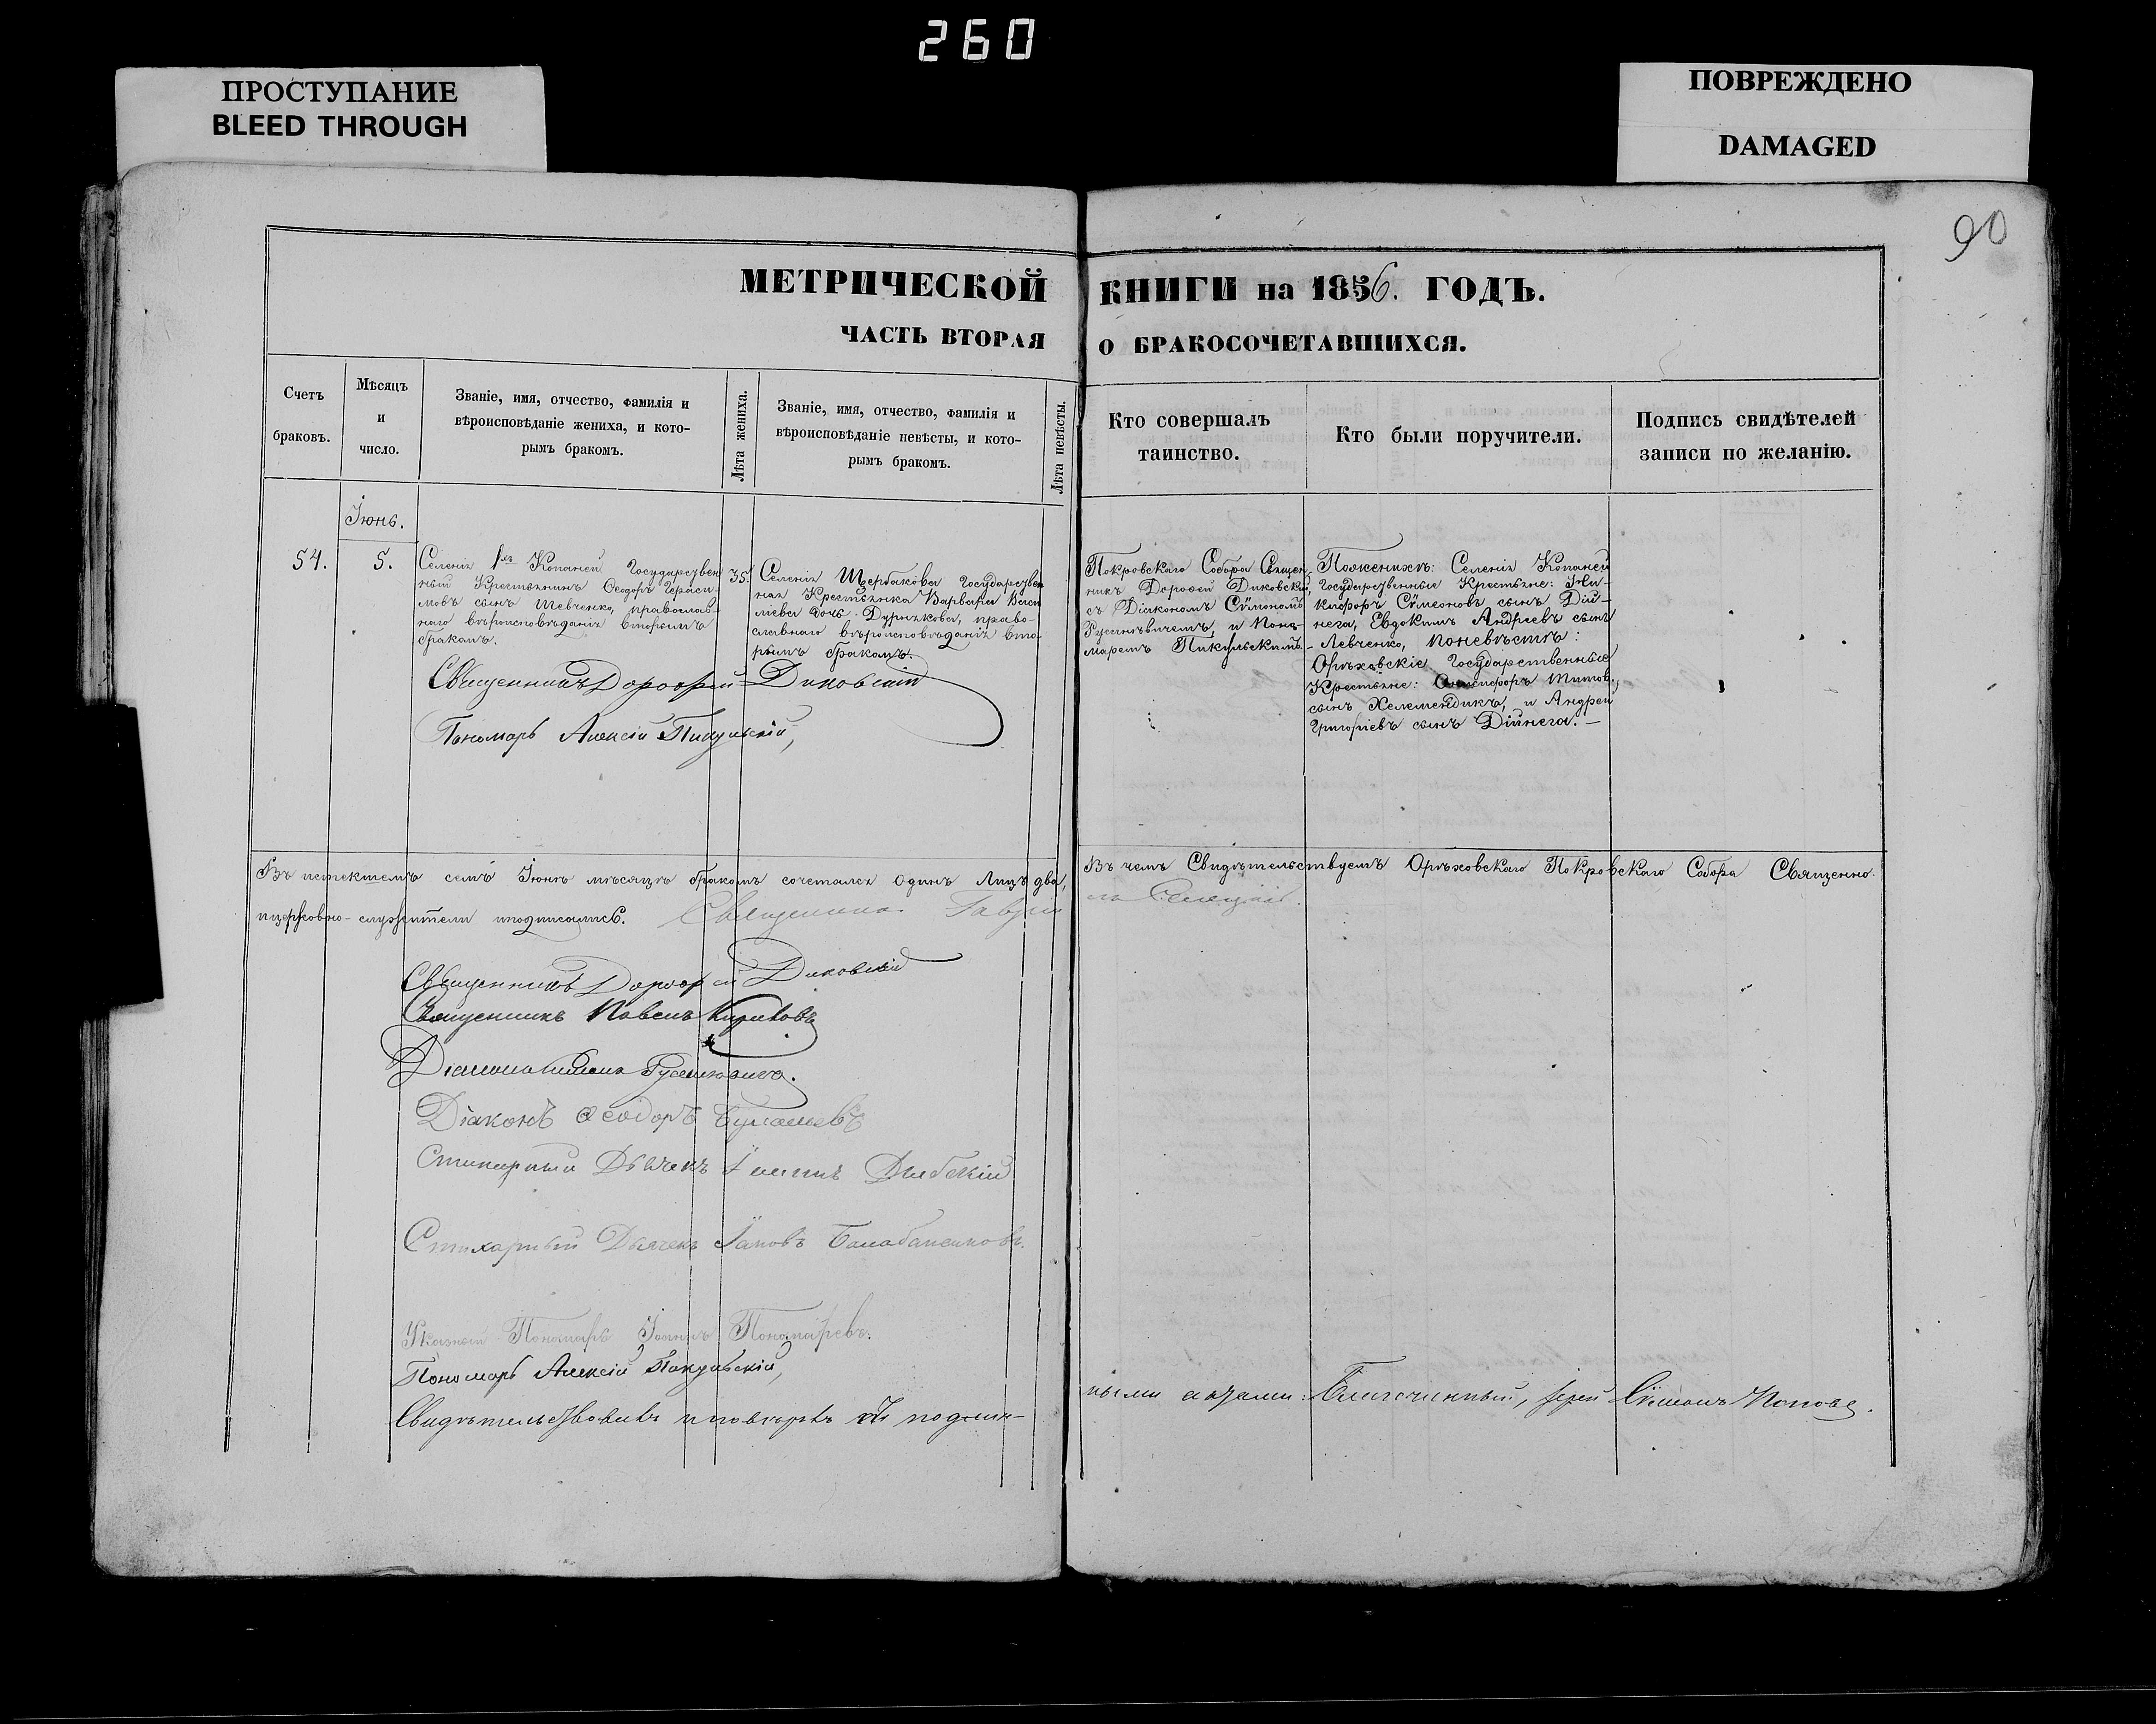 260
ПРОСТУПАНИЕ
BLEED THROUGH
ПОВРЕЖДЕНО
DAMAGED
90
МЕТРИЧЕСКОЙ КНИГИ на 1856. ГОДЪ.
ЧАСТЬ ВТОРАЯ О БРАКОСОЧЕТАВШИХСЯ.
Счетъ
браковъ.
Мѣсяцъ
и
число.
Званіе, имя, отчество, фамилія и
вѣроисповѣданіе жениха, и кото-
рымъ бракомъ.
Лѣта жениха.
Званіе, имя, отчество, фамилія и
вѣроисповѣданіе невѣсты, и кото-
рымъ бракомъ.
Лѣта невѣсты.
Кто совершалъ
таинство.
Кто были поручители.
Подпись свидѣтелей
записи по желанію.
Іюнь.
54.
5.
Селенія Копаней Государствен
ный Крестьянинъ Ѳеодоръ Гераси-
мовъ сынъ Шевченко, православ-
наго вѣроисповѣданія вторымъ
бракомъ.
35.
Селенія Щербакова Государствен
ная Крестьянка Варвара Васи
ліева дочь Дурнякова, право-
славнаго вѣроисповѣданія вто-
рымъ бракомъ.
Покровскаго Собора Священ
никъ Дороѳей Диковскій,
съ Діакономъ Сѵмеономъ
Русиневичемъ, и Поно-
маремъ Пикульскимъ.
Поженихъ: Селенія Копаней
Государственные Крестьяне: Ни-
кифоръ Сѵмеоновъ сынъ Дій-
нега, Евдокимъ Андреевъ сынъ
Левченко, поневѣстѣ:
Орѣховскіе Государственные
Крестьяне: Онисифоръ Титов.
сынъ Келеменчикъ, и Андрей
Григоріевъ сынъ Дійнега. —
Священникъ Дороѳей Диковскій
Пономарь Алексій Пикульскій,
Въ истекшемъ семъ Іюнѣ мѣсяцѣ бракомъ сочетался одинъ Лицъ два, Въ чемъ Свидѣтельствуемъ Орѣховскаго Покровскаго Собора Священно-
ицерковно-служители иподписались. Священникъ Гавріилъ
Священникъ Дороѳей Диковскій
Священникъ Павелъ Кириковъ
Діаконъ Сѵмеонъ Русиневичъ.
Діаконъ Ѳеодоръ
Стихарный Дьячекъ Іоаннъ
Стихарный Дьячекъ Іаковъ Балабаненковъ.
Указный Пономарь Іоаннъ Пономаревъ.
Пономарь Алексій Пикульскій,
Свидѣтельствовалъ иповѣрялъ съ подлин-
ными актами: Благочинный, Іерей Сѵмеонъ Поповъ.